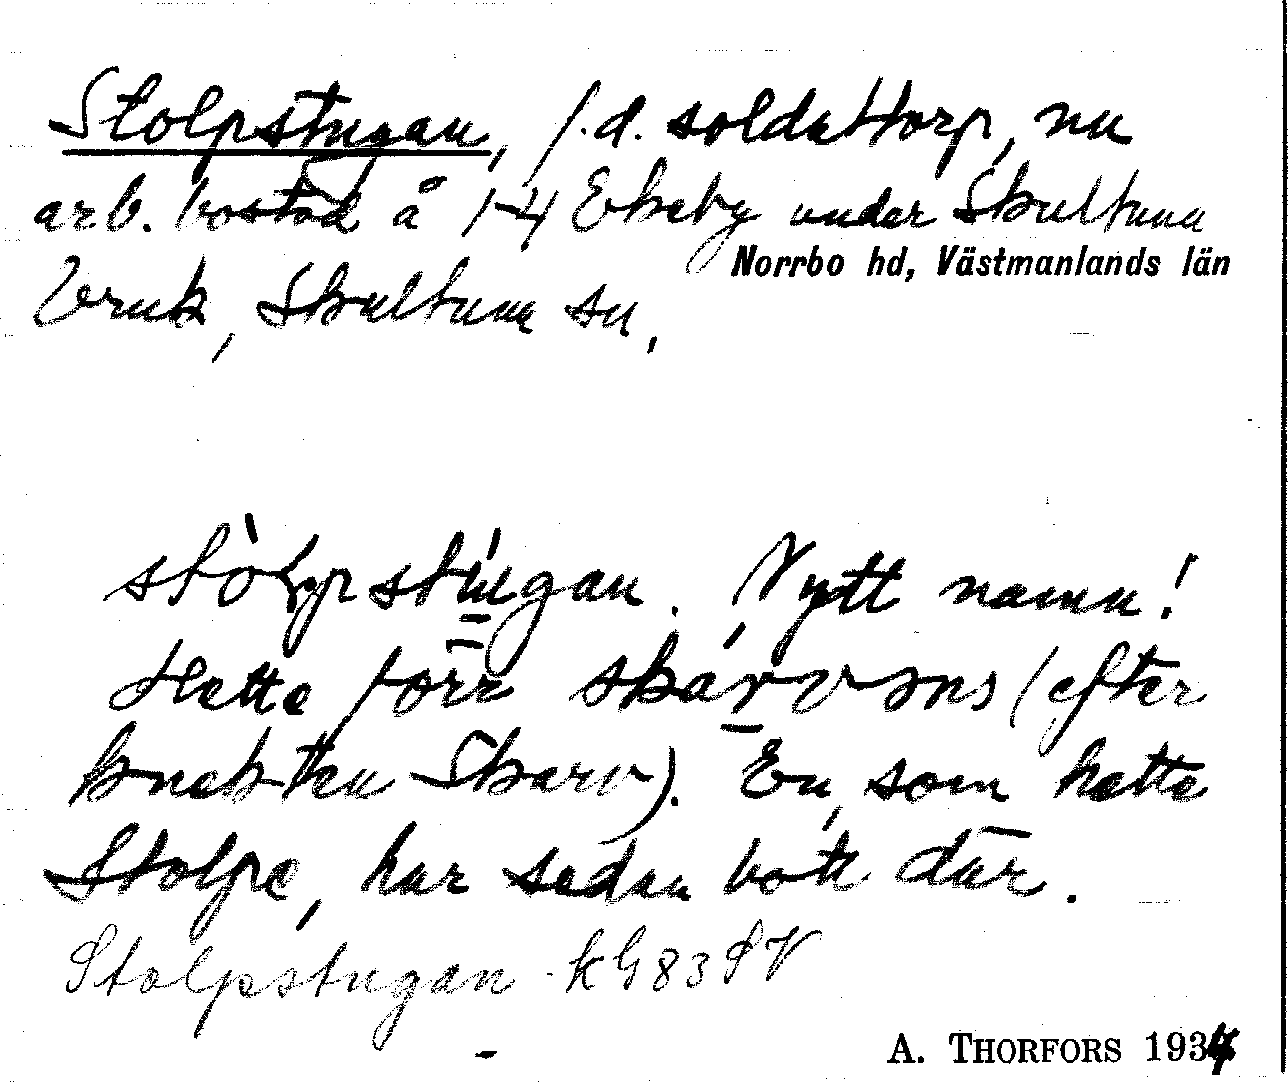 Stolpstugan, f.d. soldattorp, nu
arb. bostad å 1-4 Ekeby under Skultuna
Norrbo hd, Västmanlands län
bruk, Skultuna sn,
stòlpstúgan. Nytt namn!
Hette förr skárvɷns (efter
knekten Skarv). En, som hette
Stolpe, har sedan bott där.
Stolpstugan - kG83SV
A. THORFORS 1934